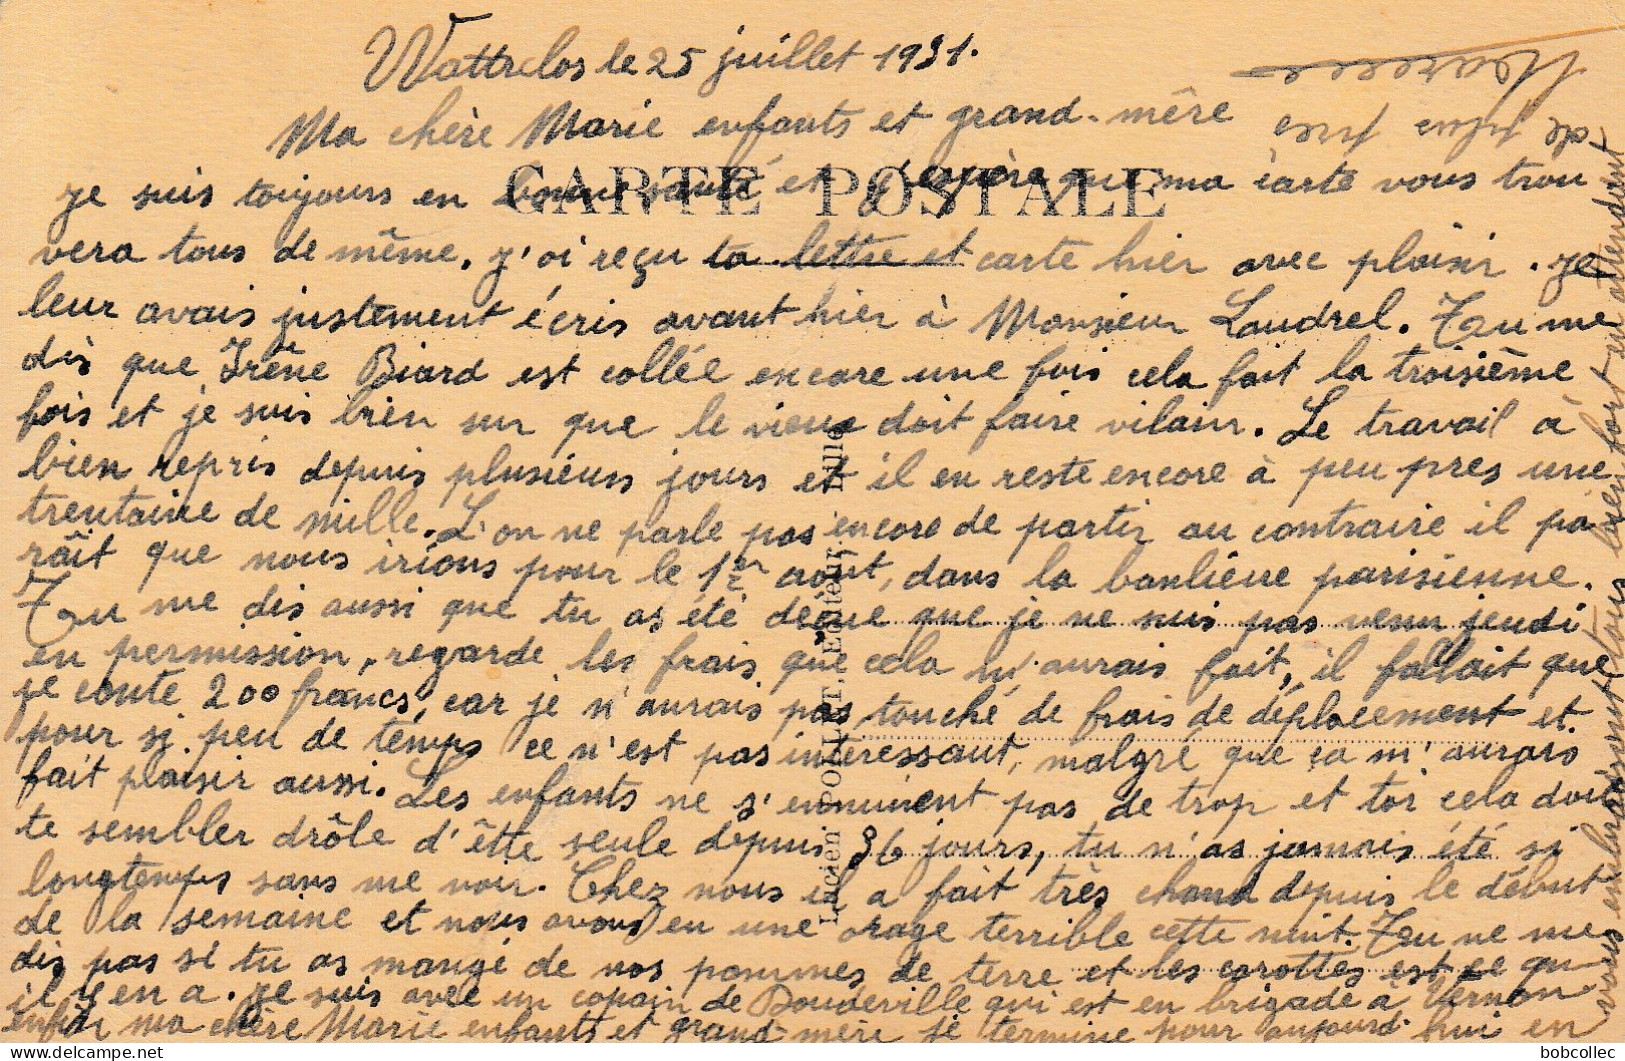 Wattrelos le 25 juillet 1931.
Ma chère Marie enfants et grand-mère
je suis toujours en bonne santé et j'espère que ma carte vous trou
vera tous de même, j'ai reçu ta lettre et carte hier avec plaisir. Je
leur avais justement écris avant hier à Monsieur Laudrel. Tu me
dis que Irène Biard est collée encore une fois cela fait la troisième
fois et je suis bien sur que le vieux doit faire vilain. Le travail à
bien repris depuis plusieurs jours et il en reste encore à peu pres une
trentaine de mille. L'on ne parle pas encore de partir au contraire il pa
raît que nous irions pour le 1er août, dans la banlieue parisienne.
Tu me dis aussi que tu as été deçue que je ne suis pas venu jeudi
en permission, regarde les frais que cela m'aurais fait, il fallait que
je conte 200 francs, car je n'aurais pas touché de frais de déplacement et
pour si peu de temps ce n'est pas intéressant, malgré que ça m'aurais
fait plaisir aussi. Les enfants ne s'ennuient pas de trop et toi cela doit
te sembler drôle d'être seule depuis 36 jours, tu n'as jamais été si
longtemps sans me voir. Chez nous il a fait très chaud depuis le début
de la semaine et nous avons eu une orage terrible cette nuit. Tu ne me
dis pas si tu as mangé de nos pommes de terre et les carottes est ce qu
il y en a. Je suis avec un copain de Doudeville qui est en brigade à Vernon
enfin ma chère Marie enfants et grand-mère je termine pour aujourd'hui en
vous embrassant tous bien fort en attendant
de
CARTE POSTALE
Lucien POLLET, Editeur - Lille
bobcollec